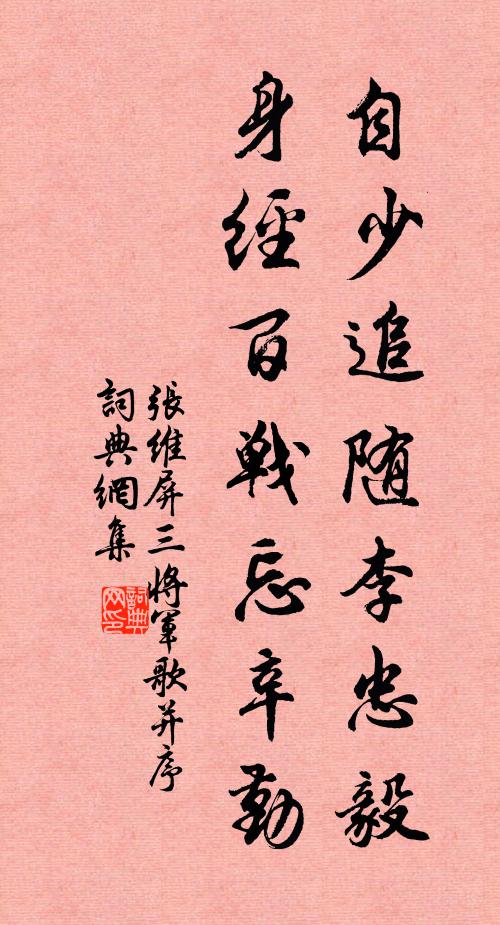 自少追随李忠毅
身經百戰忘辛勤
張維屏三將軍歌并序
詞典網集
詞典
网印